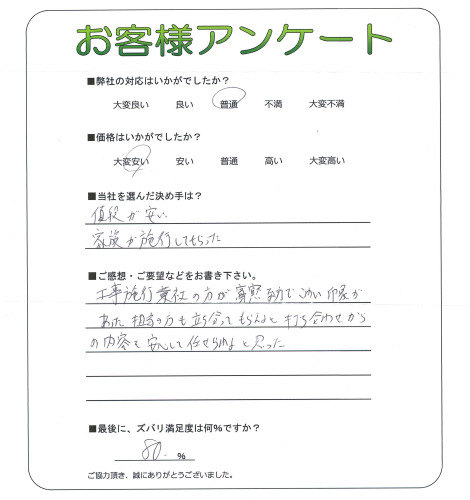 お客様アンケート
■弊社の対応はいかがでしたか？
大変良い 良い 普通 不満 大変不満
■価格はいかがでしたか？
大変安い 安い 普通 高い 大変高い
■当社を選んだ決め手は？
値段が安い
家族が施行してもらった
■ご感想・ご要望などをお書き下さい。
工事施行業社の方が寡黙 印象が
あった 担当の方も立ち会ってもらえると打ち合わせから
の内容も安心して任せられると思った
■最後に、ズバリ満足度は何％ですか？
80. ％
ご協力頂き、誠にありがとうございました。